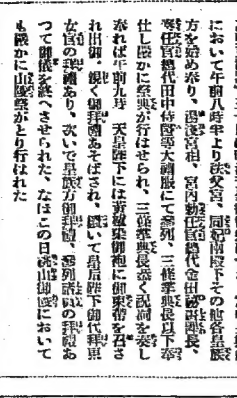 において午前八時半より秩父宮、同妃両殿下その他各皇族
方を始め奉り、湯浅宮相、宮内勅任官総代金田秘訓課長、
奏任官総代田中侍医等大礼服にて参列、三条掌典長以下奉
仕し厳かに祭典が行はせられ、三条掌典長恭く祝詞を奏し
奉れば午前九時 天皇陛下には黄櫨染御袍に御束帯を召さ
れ出御、親く御拝礼あそばされ、続いて皇后陛下御代拝
女官の拝礼あり、次いで皇族方御拝礼、参列諸員の拝礼あ
つて御儀を終へさせられた、なほこの日桃山御陵において
も厳かに山陵祭がとり行はれた